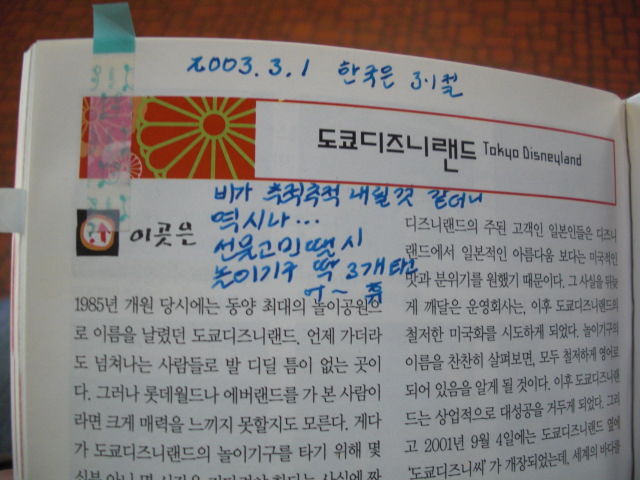 2003.3.1 한국은 3·1절
도쿄디즈니랜드 Tokyo Disneyland
비가 추적추적 내릴것 같더니
역시나...
선물고민 땟시
놀이기구 딱 3개 타고
어~ 휴
이곳은
1985년 개원 당시에는 동양 최대의 놀이공원으
로 이름을 날렸던 도쿄디즈니랜드. 언제 가더라
도 넘쳐나는 사람들로 발 디딜 틈이 없는 곳이
다. 그러나 롯데월드나 에버랜드를 가 본 사람이
라면 크게 매력을 느끼지 못할지도 모른다. 게다
가 도쿄디즈니랜드의 놀이기구를 타기 위해 몇
디즈니랜드의 주된 고객인 일본인들은 디즈니
랜드에서 일본적인 아름다움 보다는 미국적인
맛과 분위기를 원했기 때문이다. 그 사실을 뒤늦
게 깨달은 운영회사는, 이후 도쿄디즈니랜드의
철저한 미국화를 시도하게 되었다. 놀이기구의
이름을 찬찬히 살펴보면, 모두 철저하게 영어로
되어 있음을 알게 될 것이다. 이후 도쿄디즈니랜
드는 상업적으로 대성공을 거두게 되었다. 그리
고 2001년 9월 4일에는 도쿄디즈니랜드 옆에
'도쿄디즈니씨'가 개장되었는데, 세계의 바다를